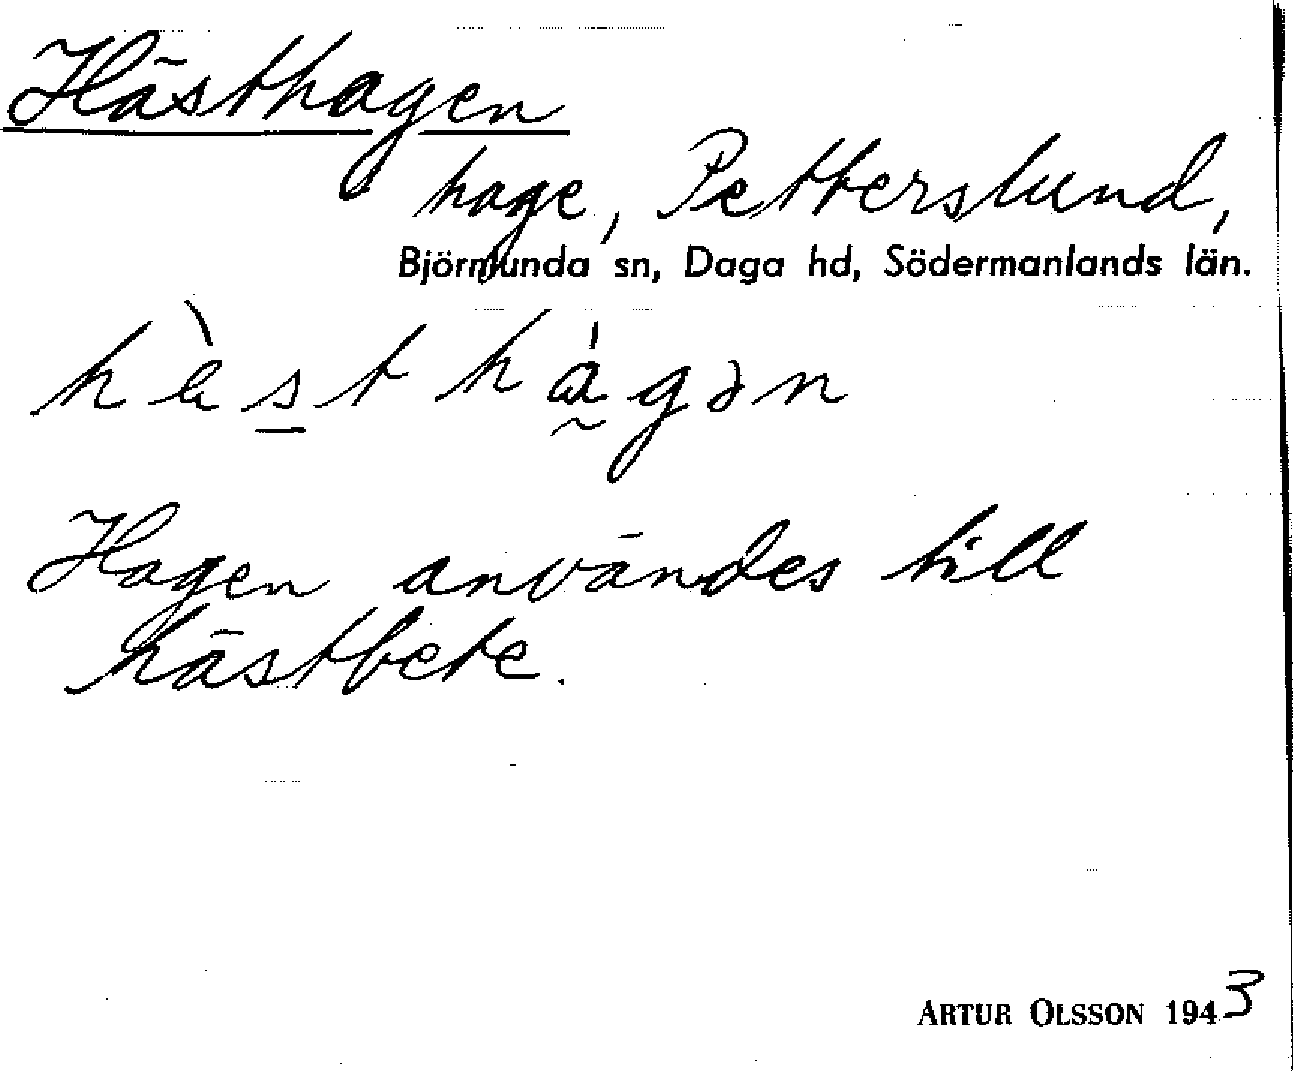 Hästhagen
hage, Petterslund,
Björnlunda sn, Daga hd, Södermanlands län.
hǜsthágən
Hagen användes till
hästbete.
ARTUR OLSSON 1943